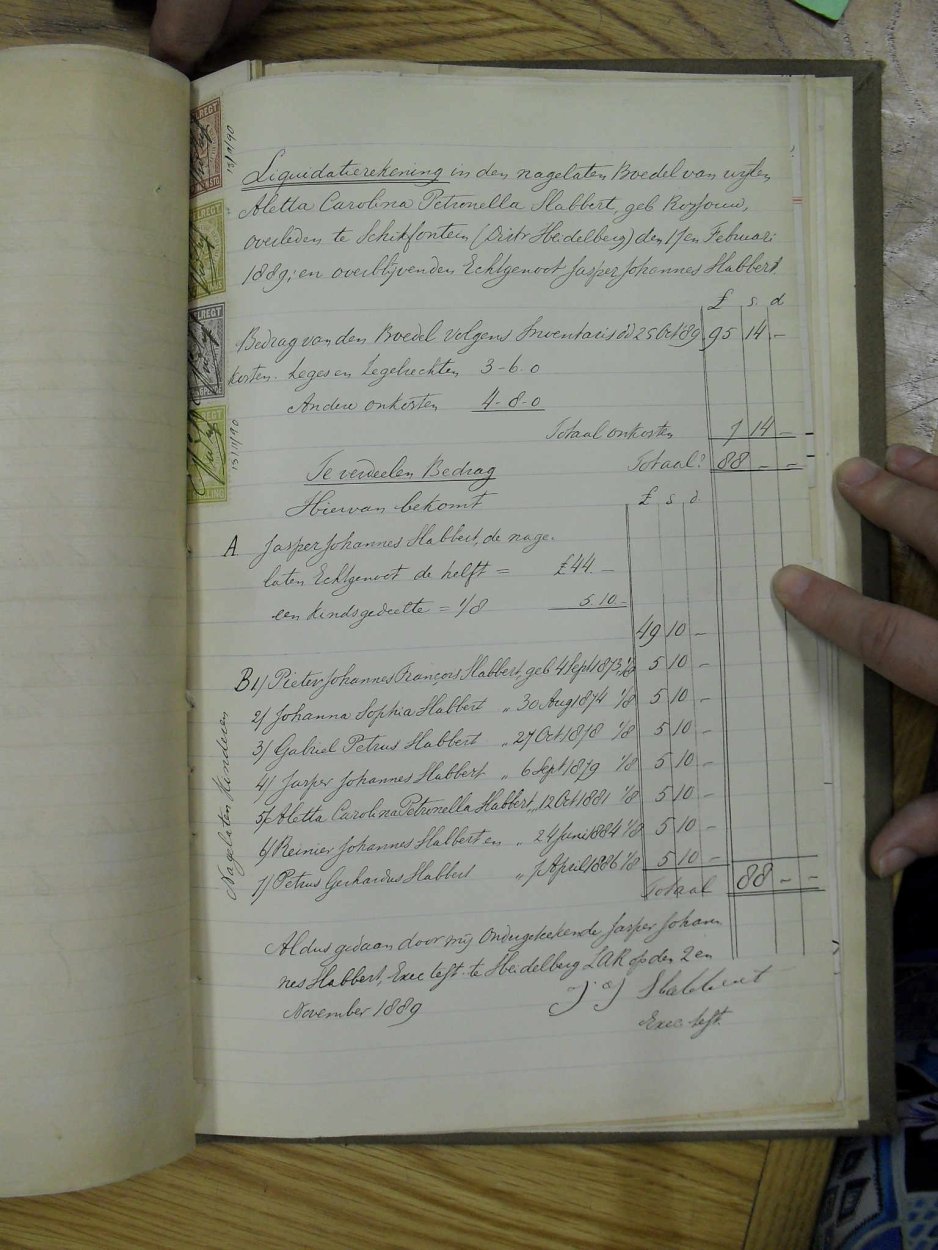 Liquidatierekening in den nagelaten Boedel van wijlen
Aletta Carolina Petronella Slabbert, geb Rossouw,
overleden te Schikfontein (Distr Heidelberg) den 17en Februari
1889; en overblijvenden Echtgenoot Jasper Johannes Slabbert.
£ s. d
Bedrag van den Boedel volgens Inventaris dd 25 Oct 89. 95 14 -
Kosten. Leges en Zegelrechten 3-6-0
Andere onkosten 4-8-0
Totaal onkosten 7 14 -
Te verdeelen Bedrag Totaal 88 - -
Hiervan bekomt £ s d
A Jasper Johannes Slabbert, de nage-
laten Echtgenoot de helft = £44. -
een kindsgedeelte = 1/8 5.10 -
49 10 -
Nagelaten Kinderen
B 1/ Pieter Johannes François Slabbert, geb 4 Sept 1873 1/8 5 10 -
2/ Johanna Sophia Slabbert " 30 Aug 1874 1/8 5 10 -
3/ Gabriel Petrus Slabbert " 27 Oct 1878 1/8 5 10 -
4/ Jasper Johannes Slabbert " 6 Sept 1879 1/8 5 10 -
5/ Aletta Carolina Petronella Slabbert " 12 Oct 1881 1/8 5 10 -
6/ Reinier Johannes Slabbert en " 24 Juni 1884 1/8 5 10 -
7/ Petrus Gerhardus Slabbert " 7 April 1886 1/8 5 10 -
Totaal 88 - -
Aldus gedaan door mij Ondergeteekende Jasper Johan-
nes Slabbert, Exec test. te Heidelberg ZAR op den 2en
November 1889 J J Slabbert
Exec. test.
13/11/90
13/11/90